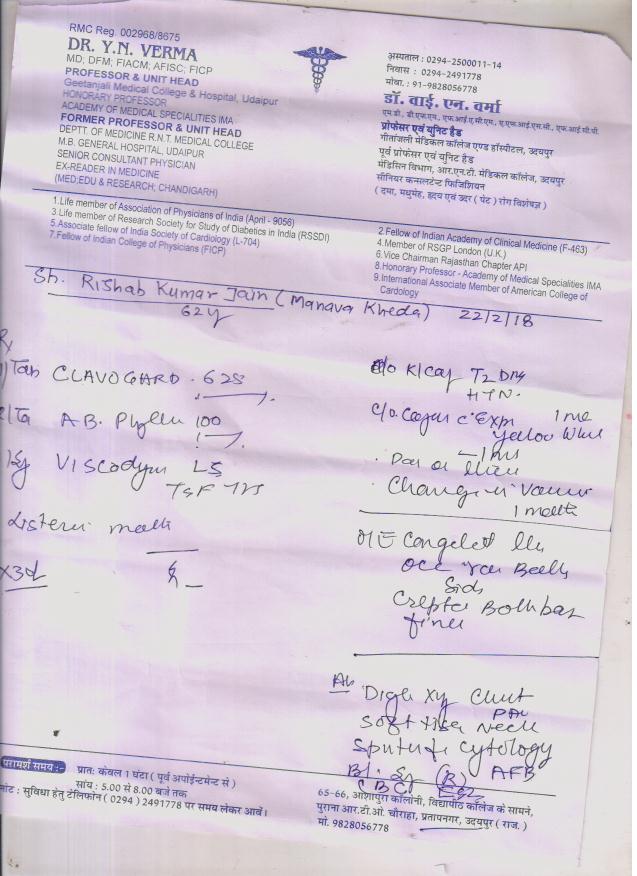 RMC Reg. 002968/8675
DR. Y.N. VERMA
MD, DFM; FIACM; AFISC; FICP
PROFESSOR & UNIT HEAD
Geetanjali Medical College & Hospital, Udaipur
HONORARY PROFESSOR
ACADEMY OF MEDICAL SPECIALITIES IMA
FORMER PROFESSOR & UNIT HEAD
DEPTT. OF MEDICINE R.N.T. MEDICAL COLLEGE
M.B. GENERAL HOSPITAL, UDAIPUR
SENIOR CONSULTANT PHYSICIAN
EX-READER IN MEDICINE
(MED;EDU & RESEARCH; CHANDIGARH)
अस्पताल : 0294-2500011-14
निवास : 0294-2491778
मोबा. : 91-9828056778
डॉ. वाई. एन. वर्मा
एम.डी., डी.एफ.एम., एफ.आई.ए.सी.एम., ए.एफ.आई.एस.सी., एफ.आई.सी.पी.
प्रोफेसर एवं यूनिट हैड
गीतांजली मेडिकल कॉलेज एण्ड हॉस्पीटल, उदयपुर
पूर्व प्रोफेसर एवं यूनिट हैड
मेडिसिन विभाग, आर.एन.टी. मेडिकल कॉलेज, उदयपुर
सीनियर कन्सलटेन्ट फिजिशियन
( दमा, मधुमेह, हृदय एवं उदर ( पेट ) रोग विशेषज्ञ )
1.Life member of Association of Physicians of India (April - 9056)
3.Life member of Research Society for Study of Diabetics in India (RSSDI)
5.Associate fellow of India Society of Cardiology (L-704)
7.Fellow of Indian College of Physicians (FICP)
2.Fellow of Indian Academy of Clinical Medicine (F-463)
4.Member of RSGP London (U.K.)
6.Vice Chairman Rajasthan Chapter API
8.Honorary Professor - Academy of Medical Specialities IMA
9.International Associate Member of American College of
Cardology
Sh. Rishab Kumar Jain (Manava Kheda) 22/2/18
62y
Rx
Tab CLAVOGARD . 625
A.B. Phyllin 100
Sy Viscodyne LS
TSF TDS
Listerin
x3d
T2 DM
HTN.
Yellow White
Change in
1 month
O/E
fine
Adv
Digi Xy Chest
PAV
Soft tissue Neck
Sputum Cytology
Bl. Sy (R) AFB
CBC ESR
परामर्श समय :-
प्रातः केवल 1 घंटा ( पूर्व अपोईन्टमेन्ट से )
सांय : 5.00 से 8.00 बजे तक
नोट : सुविधा हेतु टेलिफोन ( 0294 ) 2491778 पर समय लेकर आवें।
65-66, आशापुरा कॉलोनी, विद्यापीठ कॉलेज के सामने,
पुराना आर.टी.ओ. चौराहा, प्रतापनगर, उदयपुर ( राज. )
मो. 9828056778